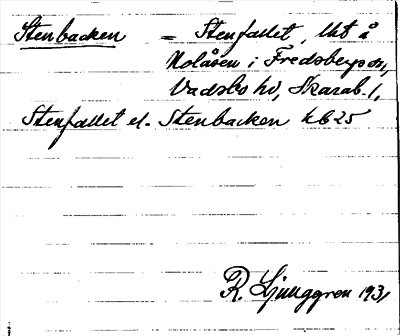 Stenbacken = Stenfallet, lht å
Holåsen i Fredsbergs sn,
Vadsbo hd, Skarab. l,
Stenfallet el. Stenbacken kb 25
R. Ljunggren 1931